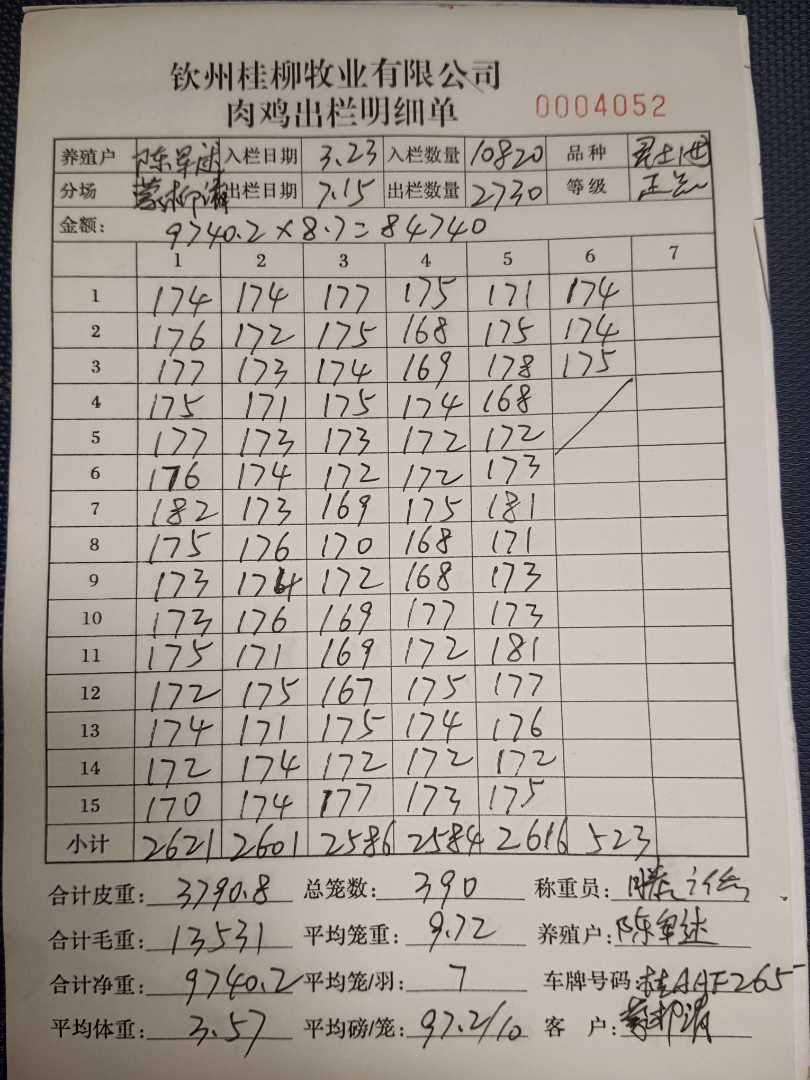 钦州桂柳牧业有限公司
肉鸡出栏明细单 0004052
养殖户 陈军述 入栏日期 3.23 入栏数量 10820 品种
分场 出栏日期 7.15 出栏数量 2730 等级
金额: 9740.2×8.7=84740
1 2 3 4 5 6 7
1 174 174 177 175 171 174
2 176 172 175 168 175 174
3 177 173 174 169 178 175
4 175 171 175 174 168
5 177 173 173 172 172
6 176 174 172 172 173
7 182 173 169 175 181
8 175 176 170 168 171
9 173 174 172 168 173
10 173 176 169 177 173
11 175 171 169 172 181
12 172 175 167 175 177
13 174 171 175 174 176
14 172 174 172 172 172
15 170 174 177 173 175
小计 2621 2601 2586 2584 2616 523
合计皮重: 3790.8 总笼数: 390 称重员:
合计毛重: 13531 平均笼重: 9.72 养殖户: 陈军述
合计净重: 9740.2 平均笼/羽: 7 车牌号码: 桂AAF265
平均体重: 3.57 平均磅/笼: 97.2/10 客户: